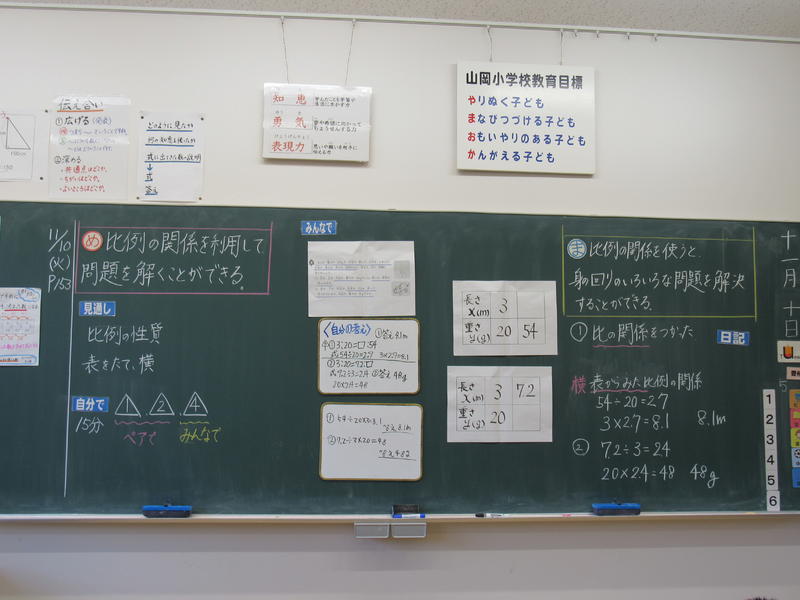 伝え合い
①広げる(発表)
②深める
・共通点はどこか。
・ちがいはどこか。
・よいところはどこか。
どのように見たか
何の知恵を使ったか
式に出てくる数の説明
式
答え
知恵
学んだことを学習や生活に生かす力
勇気
夢や希望に向かってちょうせんする力
表現力
思いや願いを相手に伝える力
山岡小学校教育目標
やりぬく子ども
まなびつづける子ども
おもいやりのある子ども
かんがえる子ども
11/10
(火)
P153
め 比例の関係を利用して
問題を解くことができる。
見通し
比例の性質
表をたて、横
自分で
15分
1 2 4
ペアで
みんなで
みんなで
〈自分の考え〉
①答え 8.1m
①3:20=□:54
式54÷20=2.7 3×2.7=8.1
②3:20=7.2:□
式7.2÷3=2.4 ②答え 48g
20×2.4=48
①54÷20×3=8.1
答え 8.1m
②7.2÷3×20=48
答え 48g
長さ x(m) 3
重さ y(g) 20 54
長さ x(m) 3 7.2
重さ y(g) 20
ま 比例の関係を使うと、
身の回りのいろいろな問題を解決
することができる。
①比の関係をつかった
日記
横 表からみた比例の関係
54÷20=2.7
3×2.7=8.1 8.1m
② 7.2÷3=2.4
20×2.4=48 48g
十一月十日
1
2
3
4
5
6